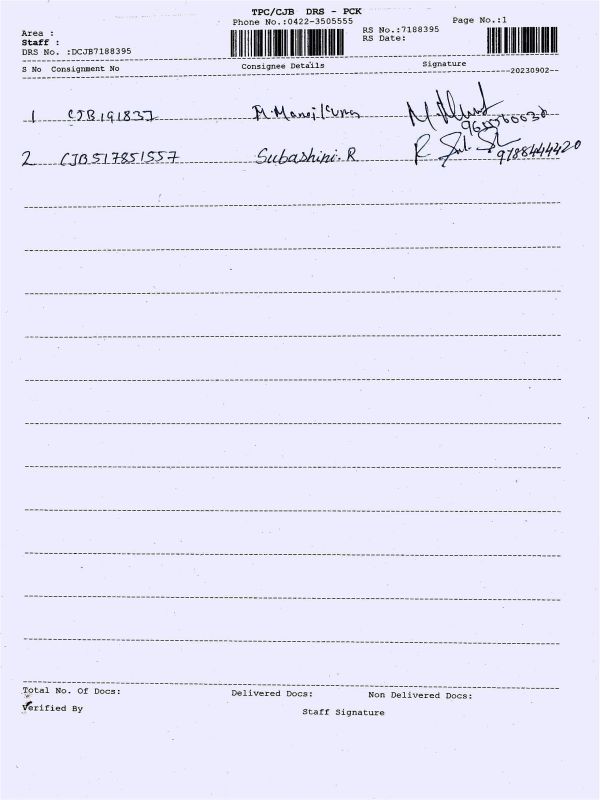 TPC/CJB DRS - PCK
Phone No.:0422-3505555
Page No.:1
Area :
RS No.:7188395
Staff :
RS Date:
DRS No. :DCJB7188395
S No Consignment No Consignee Details Signature
--20230902--
1 CJB191837 M. Manoj
2 CJB517851557 Subashini. R
9788444420
Total No. Of Docs: Delivered Docs: Non Delivered Docs:
Verified By Staff Signature